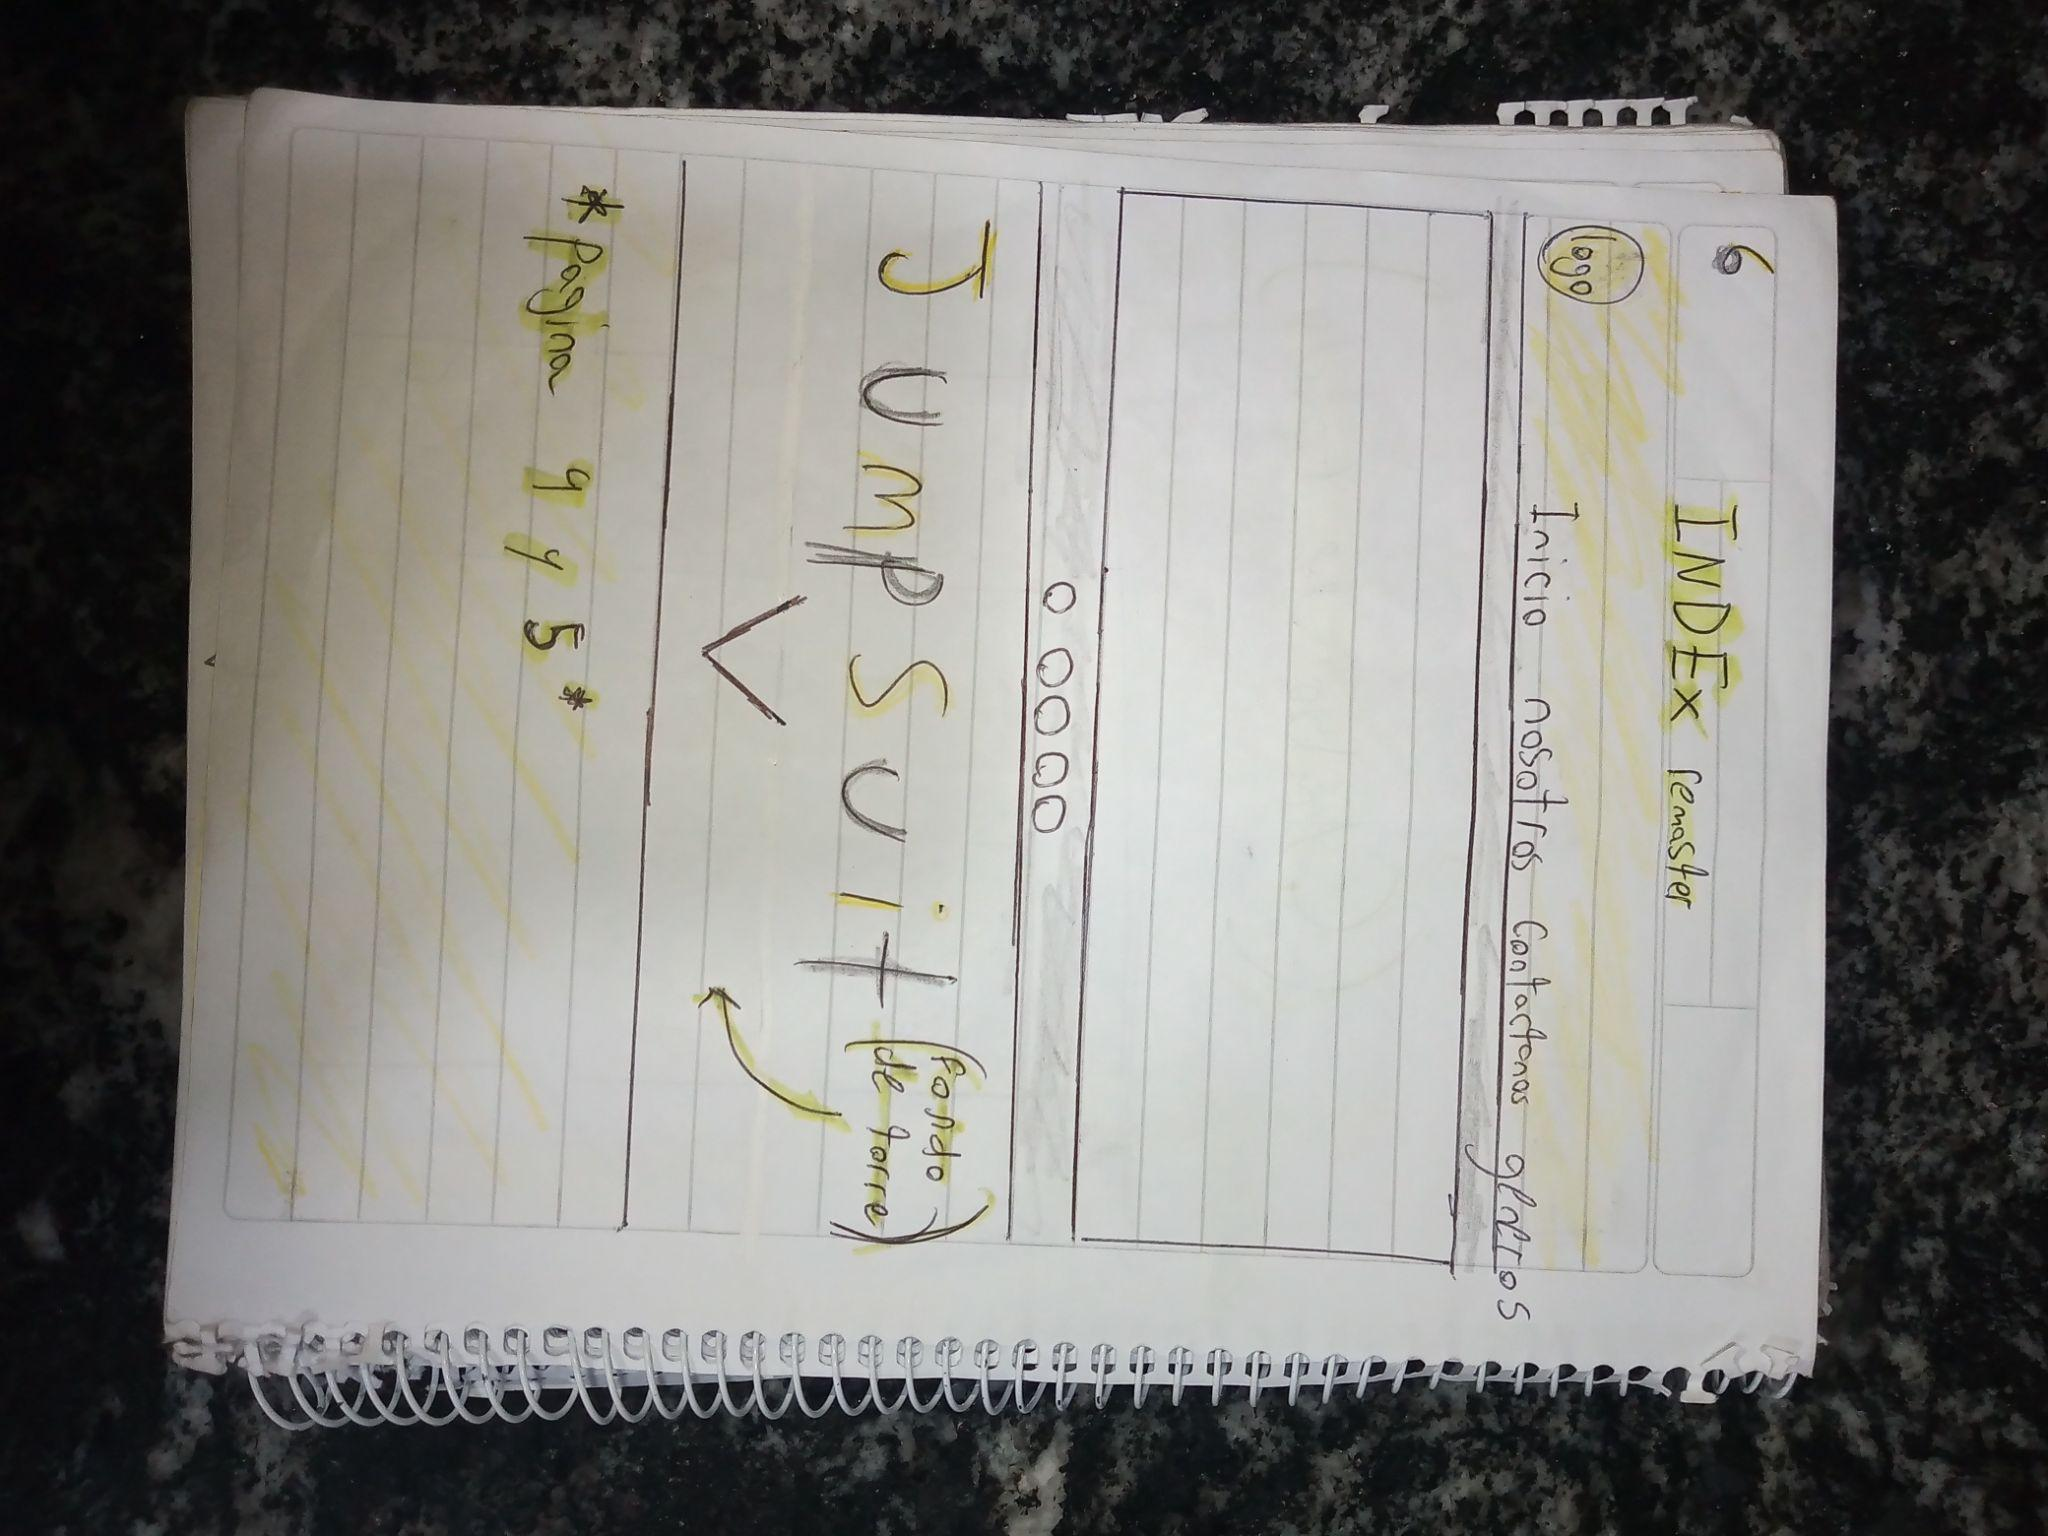 6
INDEx remaster
logo
Inicio nosotros Contactonos generos
o oooo
JUMPSUit (Fondo
de torre)
V
*Pagina 4 y 5*